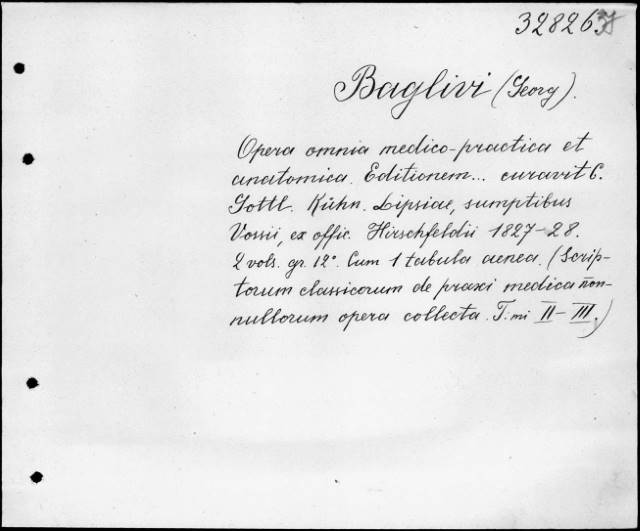 32826
Baglivi (Georg).
Opera omnia medico-practica et
anatomica. Editionem... curavit C.
Gottl. Kühn. Lipsiae, sumptibus
Vossii, ex offic. Hirschfeldii 1827-28.
2 vols. gr. 12°. Cum 1 tabula aenea. (Scrip-
torum classicorum de praxi medica non-
nullorum opera collecta. T. mi II-III.)